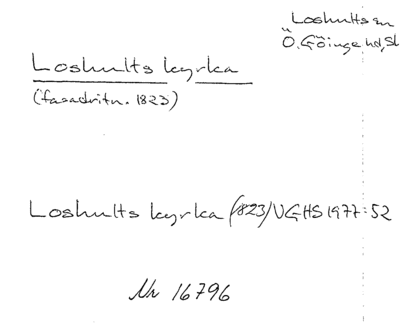 Loshults sn
Ö. Göinge hd, Sk
Loshults kyrka
(fasadritn. 1823)
Loshults kyrka (1823) VGHS 1977:52
Nr 16796